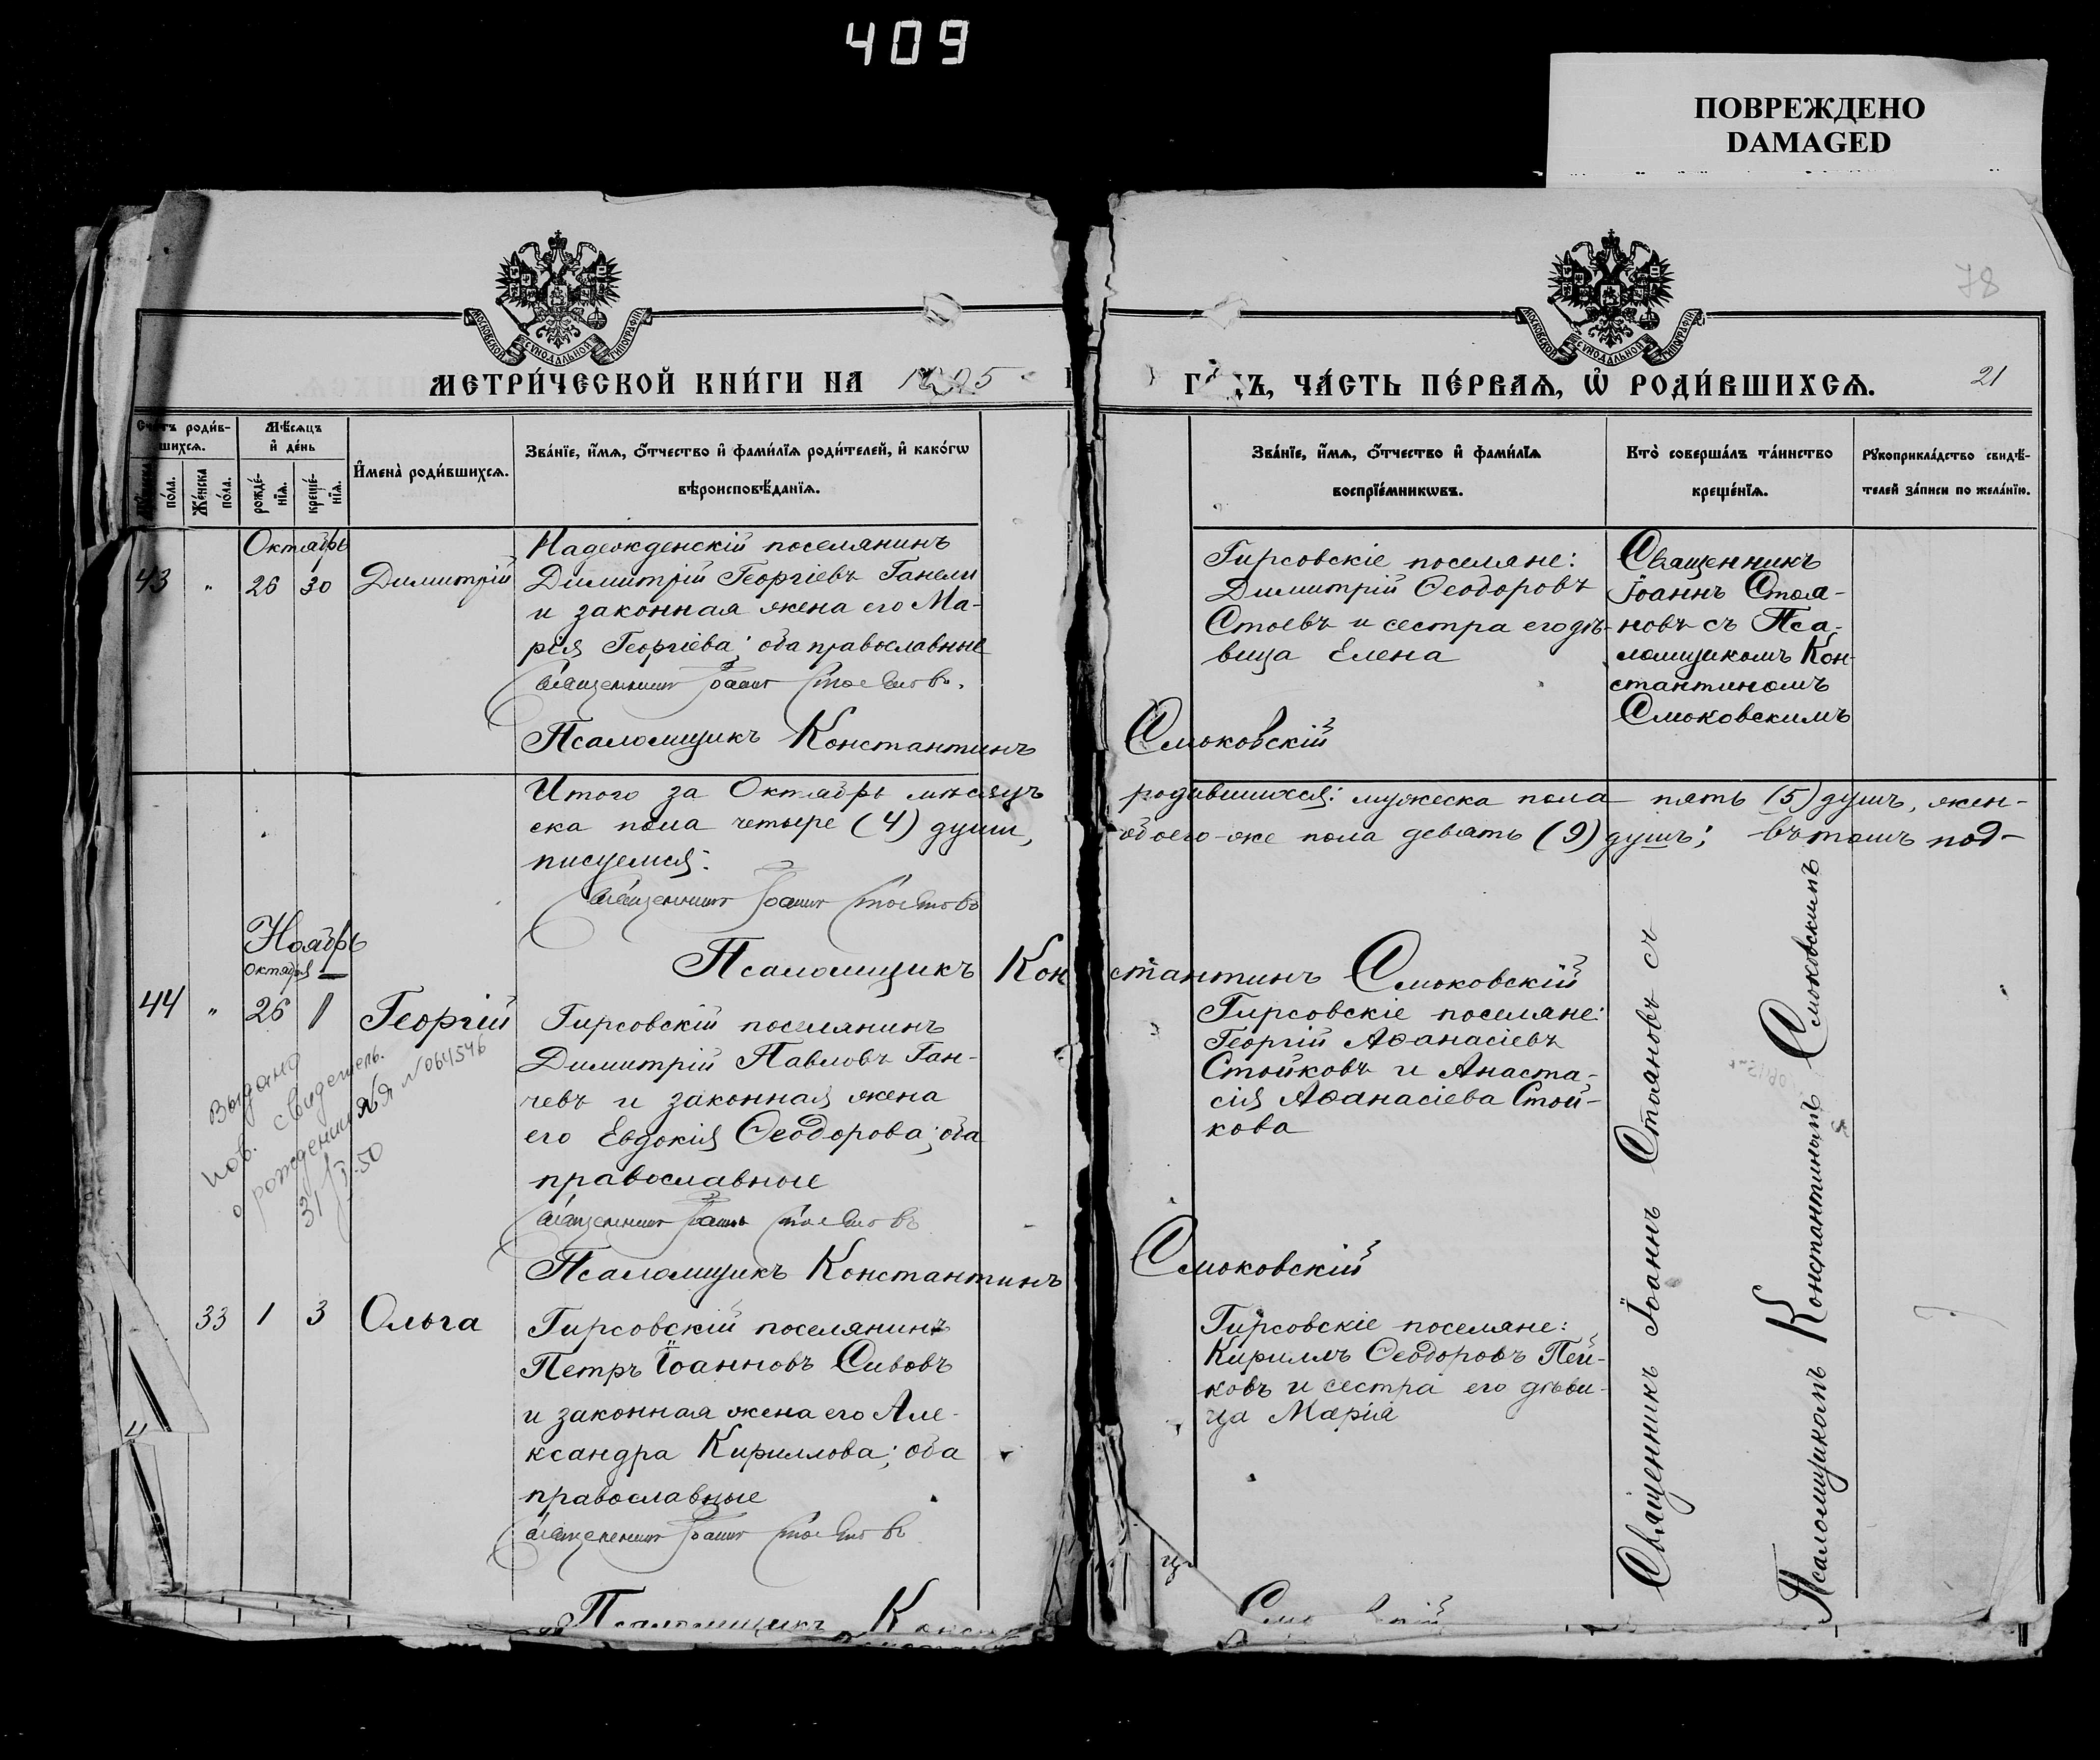 409
ПОВРЕЖДЕНО
DAMAGED
78
МОСКОВСКОЙ СѴНОДАЛЬНОЙ ТИПОГРАФІИ
МОСКОВСКОЙ СѴНОДАЛЬНОЙ ТИПОГРАФІИ
МЕТРИ́ЧЕСКОЙ КНИ́ГИ НА 1895
ЧА́СТЬ ПЕ́РВАѦ, Ѡ҆ РОДИ́ВШИХСѦ.
21
Сче́тъ роди́в-
шихсѧ.
По́ла.
Же́нска
по́ла.
Мѣ́сѧцъ
и҆ де́нь
рожде́-
нїѧ.
креще́-
нїѧ.
И҆мена̀ роди́вшихсѧ.
Зва́нїе, и҆́мѧ, ѻ҆́тчество и҆ фами́лїѧ роди́телей, и҆ како́гѡ
вѣроисповѣ́данїѧ.
Зва́нїе, и҆́мѧ, ѻ҆́тчество и҆ фами́лїѧ
воспрїе́мникѡвъ.
Кто̀ соверша́лъ та́инство
креще́нїѧ.
Рꙋкоприкла́дство свидѣ́-
телей за́писи по жела́нїю.
Октябрь
43 " 26 30 Димитрій
Надежденскій поселянинъ
Димитрій Георгіевъ Ганели
и законная жена его Ма-
рія Георгіева; оба православные
Священникъ Іоаннъ Стояновъ.
Псаломщикъ Константинъ Смоковскій
Гирсовскіе поселяне:
Димитрій Ѳеодоровъ
Стоевъ и сестра его дѣ-
вица Елена
Священникъ
Іоаннъ Стоя-
новъ съ Пса-
ломщикомъ Кон-
стантиномъ
Смоковскимъ
Итого за Октябрь мѣсяцъ родившихся: мужеска пола пять (5) душъ, жен-
ска пола четыре (4) души, обоего же пола девять (9) душъ; въ томъ под-
писуемся:
Священникъ Іоаннъ Стояновъ
Псаломщикъ Константинъ Смоковскій
Ноябрь
Октября
44 " 26 1 Георгій
Гирсовскій поселянинъ
Димитрій Павловъ Ган-
чевъ и законная жена
его Евдокія Ѳеодорова; оба
православные
Священникъ Іоаннъ Стояновъ
Псаломщикъ Константинъ Смоковскій
Гирсовскіе поселяне:
Георгій Аѳанасіевъ
Стойковъ и Анаста-
сія Аѳанасіева Стой-
кова
Выдано
пов. свидетель.
о рождении ЯЯ N 064546
31/I-50
33 1 3 Ольга
Гирсовскій поселянинъ
Петръ Іоанновъ Сивовъ
и законная жена его Але-
ксандра Кириллова; оба
православные
Священникъ Іоаннъ Стояновъ
Гирсовскіе поселяне:
Кириллъ Ѳеодоровъ Пей-
ковъ и сестра его дѣви-
ца Марія
Священникъ Іоаннъ Стояновъ съ
Псаломщикомъ Константиномъ Смоковскимъ
Псаломщикъ